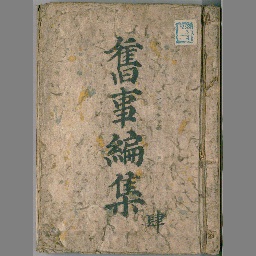 舊事編集
肆